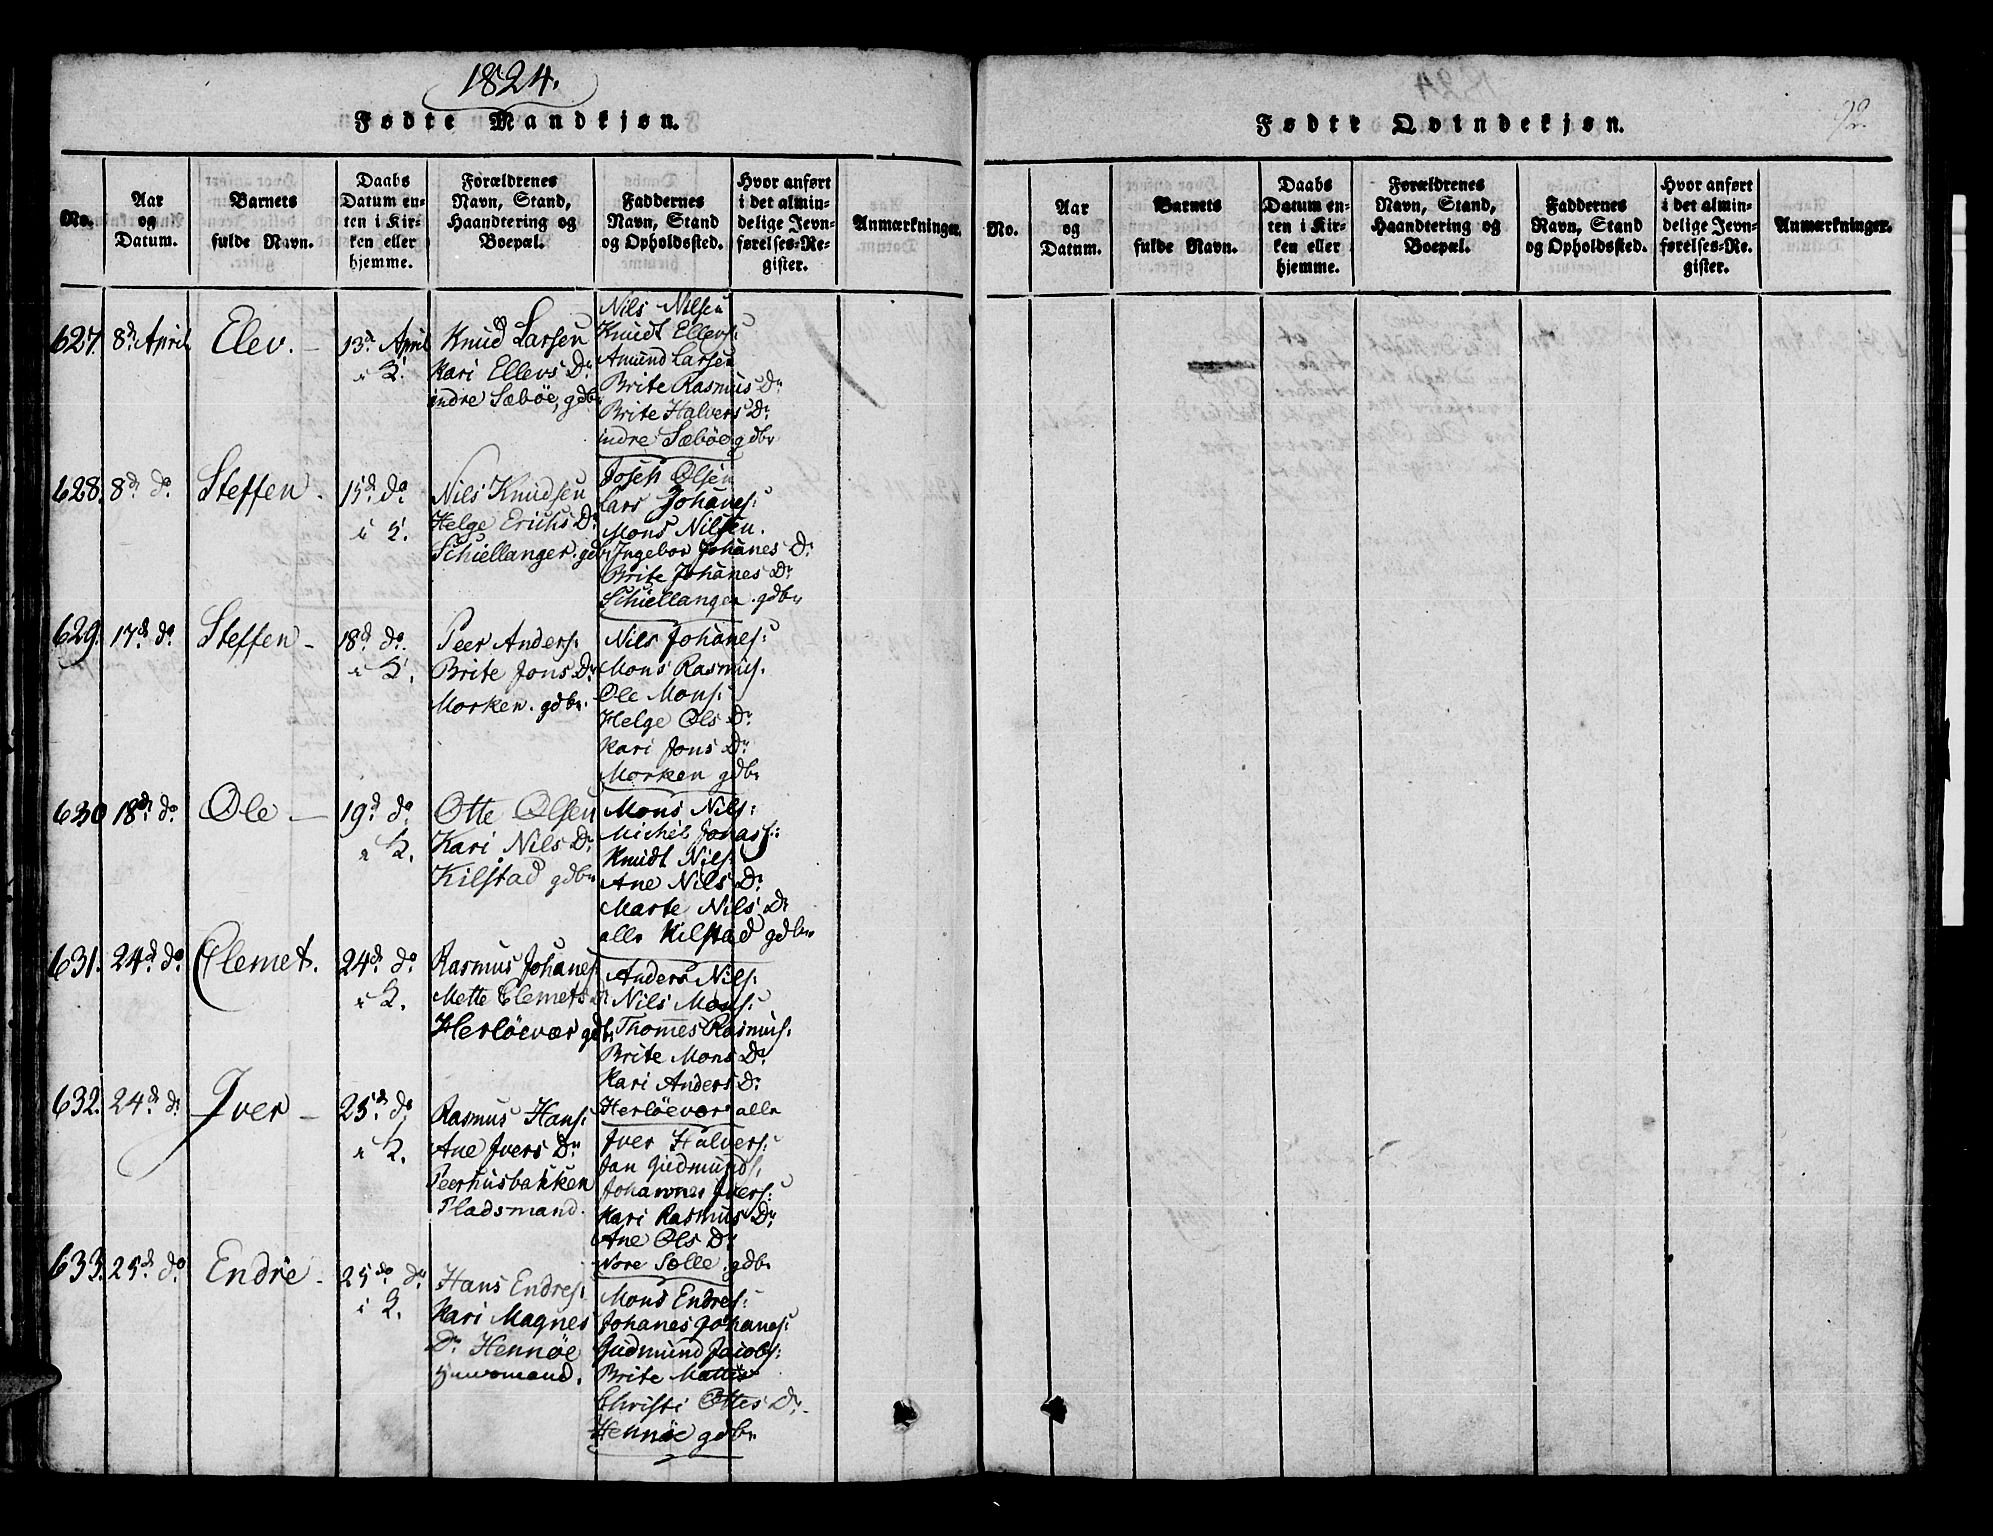 1824.
Fødte Mandkjøn.
No.
Aar
og
Datum.
Barnets
fulde Navn.
Daabs
Datum en-
ten i Kir-
ken eller
hjemme.
Forældrenes
Navn, Stand,
Haandtering og
Boepæl.
Faddernes
Navn, Stand
og Opholdssted.
Hvor anført
i det almin-
delige Jevn-
førelses-Re-
gister.
Anmærkninger.
627.
8d April
Elev.
13d April
i K.
Knud Larsen
Kari Ellevs Dr
indre Sæbøe, gdbr
Nils Nilsen
Knudt Ellevs:
Amund Larsen
Brite Rasmus Dr
Brite Halvers Dr
indre Sæbøe gdbr
628.
8d do
Steffen.
15d do
i K.
Nils Knudsen
Helge Erichs Dr
Schiellanger. gdbr
Joseh Olsen
Lars Johanes:
Mons Nilsen.
Ingebor Johanes Dr
Brite Johanes Dr
Schiellanger. gdbr
629.
17d do
Steffen
18d do
i K.
Peer Anders:
Brite Jons Dr
Morken. gdbr.
Nils Johanes:
Mons Rasmus.
Ole Mons:
Helge Ols Dr
Kari Jons Dr
Morken gdbr
630
18d do
Ole
19d do
i K.
Otte Olsen
Kari Nils Dr
Kilstad gdbr
Mons Nils:
Michel Jonas:
Knudt Nils:
Ane Nils Dr
Marte Nils Dr
alle Kilstad gdbr
631.
24d do
Clemet.
24d do
i K.
Rasmus Johanes:
Mette Clemets Dr
Herløevær gdbr
Anders Nils:
Nils Mons:
Thomes Rasmus:
Brite Mons Dr
Kari Anders Dr
Herløevær alle
632.
24d do
Iver
25d do
i K.
Rasmus Hans:
Ane Ivers Dr
Peerhusbakken
Pladsmand.
Iver Halvers:
Jan Gudmunds.
Johannes Ivers:
Kari Rasmus Dr
Ane Ols Dr
Nore Sælle. gdbr
633.
25d do
Endre
25d do
i K.
Hans Endres:
Kari Magnes
Dr Hennøe
Huusmand.
Mons Endres:
Johanes Johanes:
Gudmund Jacobs:
Brite Mattis
Christi Ottes Dr
Hennøe gdbr
Fødte Qvindekjøn.
92.
No.
Aar
og
Datum.
Barnets
fulde Navn.
Daabs
Datum en-
ten i Kir-
ken eller
hjemme.
Forældrenes
Navn, Stand,
Haandtering og
Boepæl.
Faddernes
Navn, Stand
og Opholdssted.
Hvor anført
i det almin-
delige Jevn-
førelses-Re-
gister.
Anmærkninger.